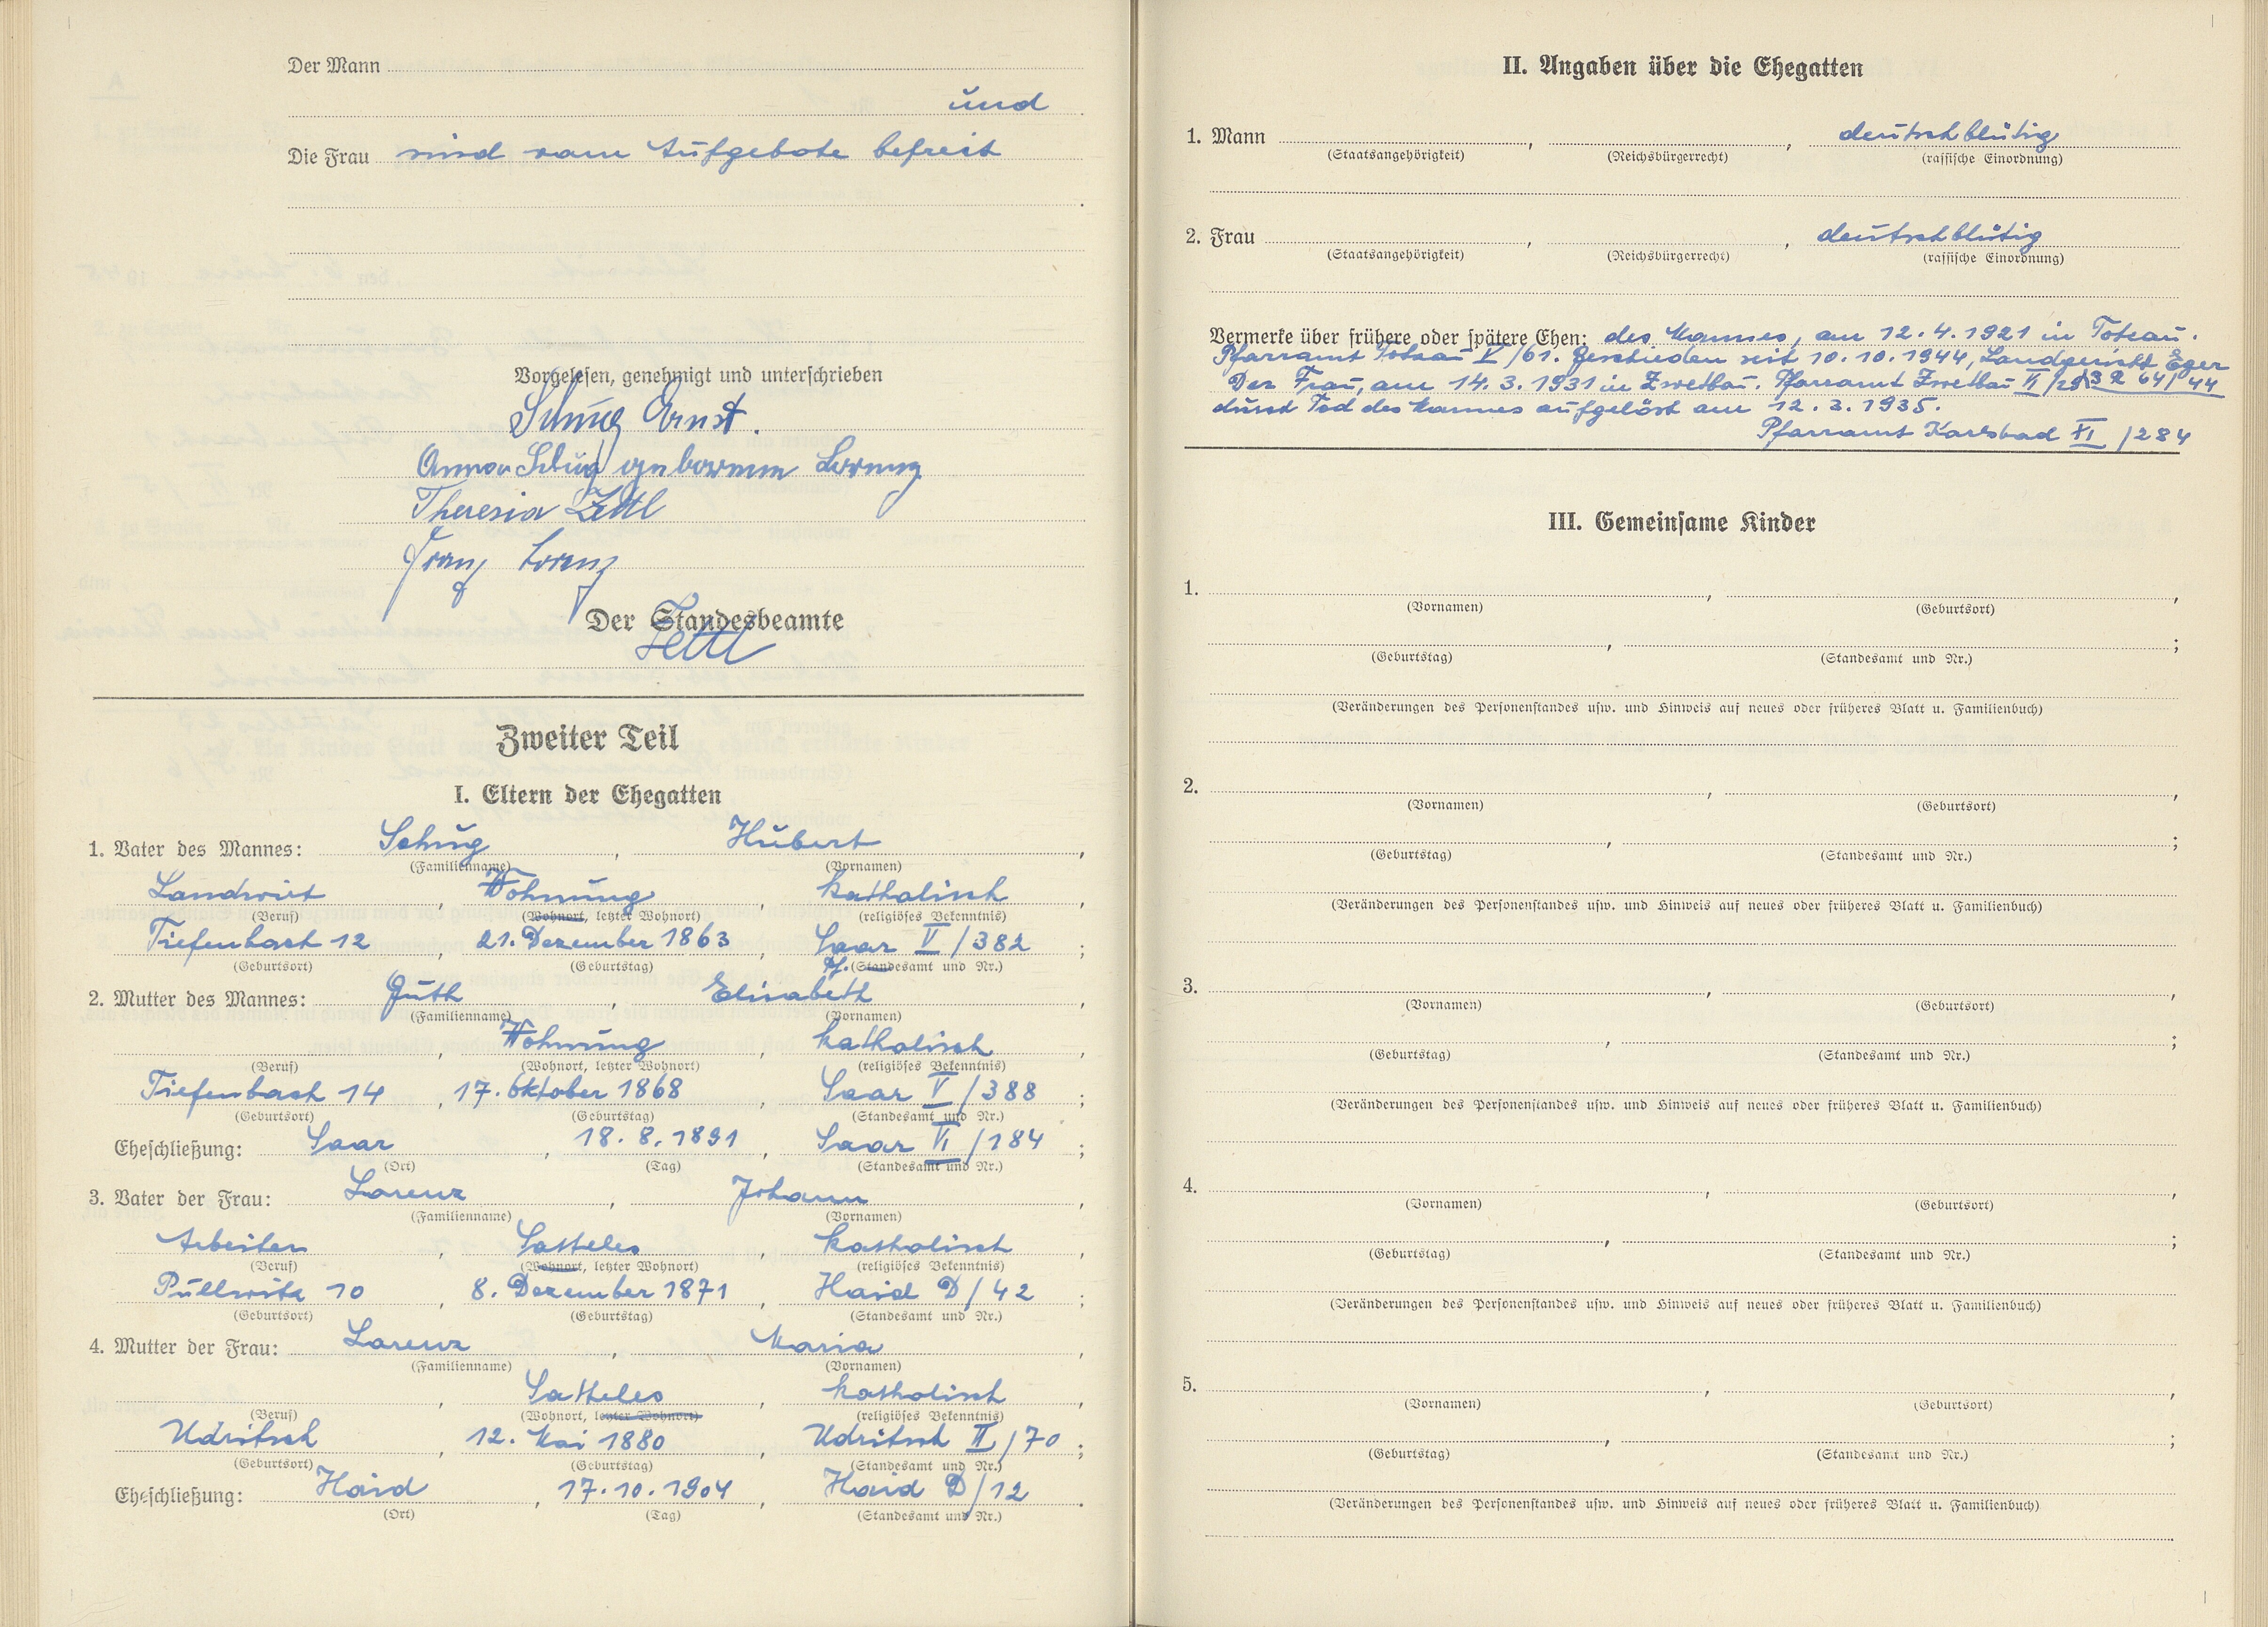 Der Mann
und
Die Frau sind vom Aufgebote befreit
Vorgelesen, genehmigt und unterschrieben
Schug Ernst.
Anna Schug geborene Lorenz
Theresia Zettl
Franz Lorenz
Der Standesbeamte
Zettl
Zweiter Teil
I. Eltern der Ehegatten
1. Vater des Mannes: Schug, Hubert,
(Familienname) (Vornamen)
Landwirt, Wohnung, katholisch,
(Beruf) (Wohnort, letzter Wohnort) (religiöses Bekenntnis)
Tiefenbach 12, 21. Dezember 1863, Saar V/382;
(Geburtsort) (Geburtstag) Pf. (Standesamt und Nr.)
2. Mutter des Mannes: Guth, Elisabeth,
(Familienname) (Vornamen)
, Wohnung, katholisch,
(Beruf) (Wohnort, letzter Wohnort) (religiöses Bekenntnis)
Tiefenbach 14, 17. Oktober 1868, Saar V/388;
(Geburtsort) (Geburtstag) (Standesamt und Nr.)
Eheschließung: Saar, 18.8.1891, Saar VI/184;
(Ort) (Tag) (Standesamt und Nr.)
3. Vater der Frau: Lorenz, Johann,
(Familienname) (Vornamen)
Arbeiter, Satteles, katholisch,
(Beruf) (Wohnort, letzter Wohnort) (religiöses Bekenntnis)
Pullwitz 10, 8. Dezember 1871, Haid D/42;
(Geburtsort) (Geburtstag) (Standesamt und Nr.)
4. Mutter der Frau: Lorenz, Maria,
(Familienname) (Vornamen)
, Satteles, katholisch,
(Beruf) (Wohnort, letzter Wohnort) (religiöses Bekenntnis)
Udritsch, 12. Mai 1880, Udritsch II/70;
(Geburtsort) (Geburtstag) (Standesamt und Nr.)
Eheschließung: Haid, 17.10.1904, Haid D/12.
(Ort) (Tag) (Standesamt und Nr.)
II. Angaben über die Ehegatten
1. Mann , , deutschblütig
(Staatsangehörigkeit) (Reichsbürgerrecht) (rassische Einordnung)
2. Frau , , deutschblütig
(Staatsangehörigkeit) (Reichsbürgerrecht) (rassische Einordnung)
Vermerke über frühere oder spätere Ehen: des Mannes, am 12.4.1921 in Totzau.
Pfarramt Totzau V/61. Geschieden seit 10.10.1944, Landgericht Eger
Der Frau, am 14.3.1931 in Zwetbau. Pfarramt Zwetbau II/ 3 R 64/44
durch Tod des Mannes aufgelöst am 12.3.1935.
Pfarramt Karlsbad XI/284
III. Gemeinsame Kinder
1. , ,
(Vornamen) (Geburtsort)
, ;
(Geburtstag) (Standesamt und Nr.)
(Veränderungen des Personenstandes usw. und Hinweis auf neues oder früheres Blatt u. Familienbuch)
2. , ,
(Vornamen) (Geburtsort)
, ;
(Geburtstag) (Standesamt und Nr.)
(Veränderungen des Personenstandes usw. und Hinweis auf neues oder früheres Blatt u. Familienbuch)
3. , ,
(Vornamen) (Geburtsort)
, ;
(Geburtstag) (Standesamt und Nr.)
(Veränderungen des Personenstandes usw. und Hinweis auf neues oder früheres Blatt u. Familienbuch)
4. , ,
(Vornamen) (Geburtsort)
, ;
(Geburtstag) (Standesamt und Nr.)
(Veränderungen des Personenstandes usw. und Hinweis auf neues oder früheres Blatt u. Familienbuch)
5. , ,
(Vornamen) (Geburtsort)
, ;
(Geburtstag) (Standesamt und Nr.)
(Veränderungen des Personenstandes usw. und Hinweis auf neues oder früheres Blatt u. Familienbuch)